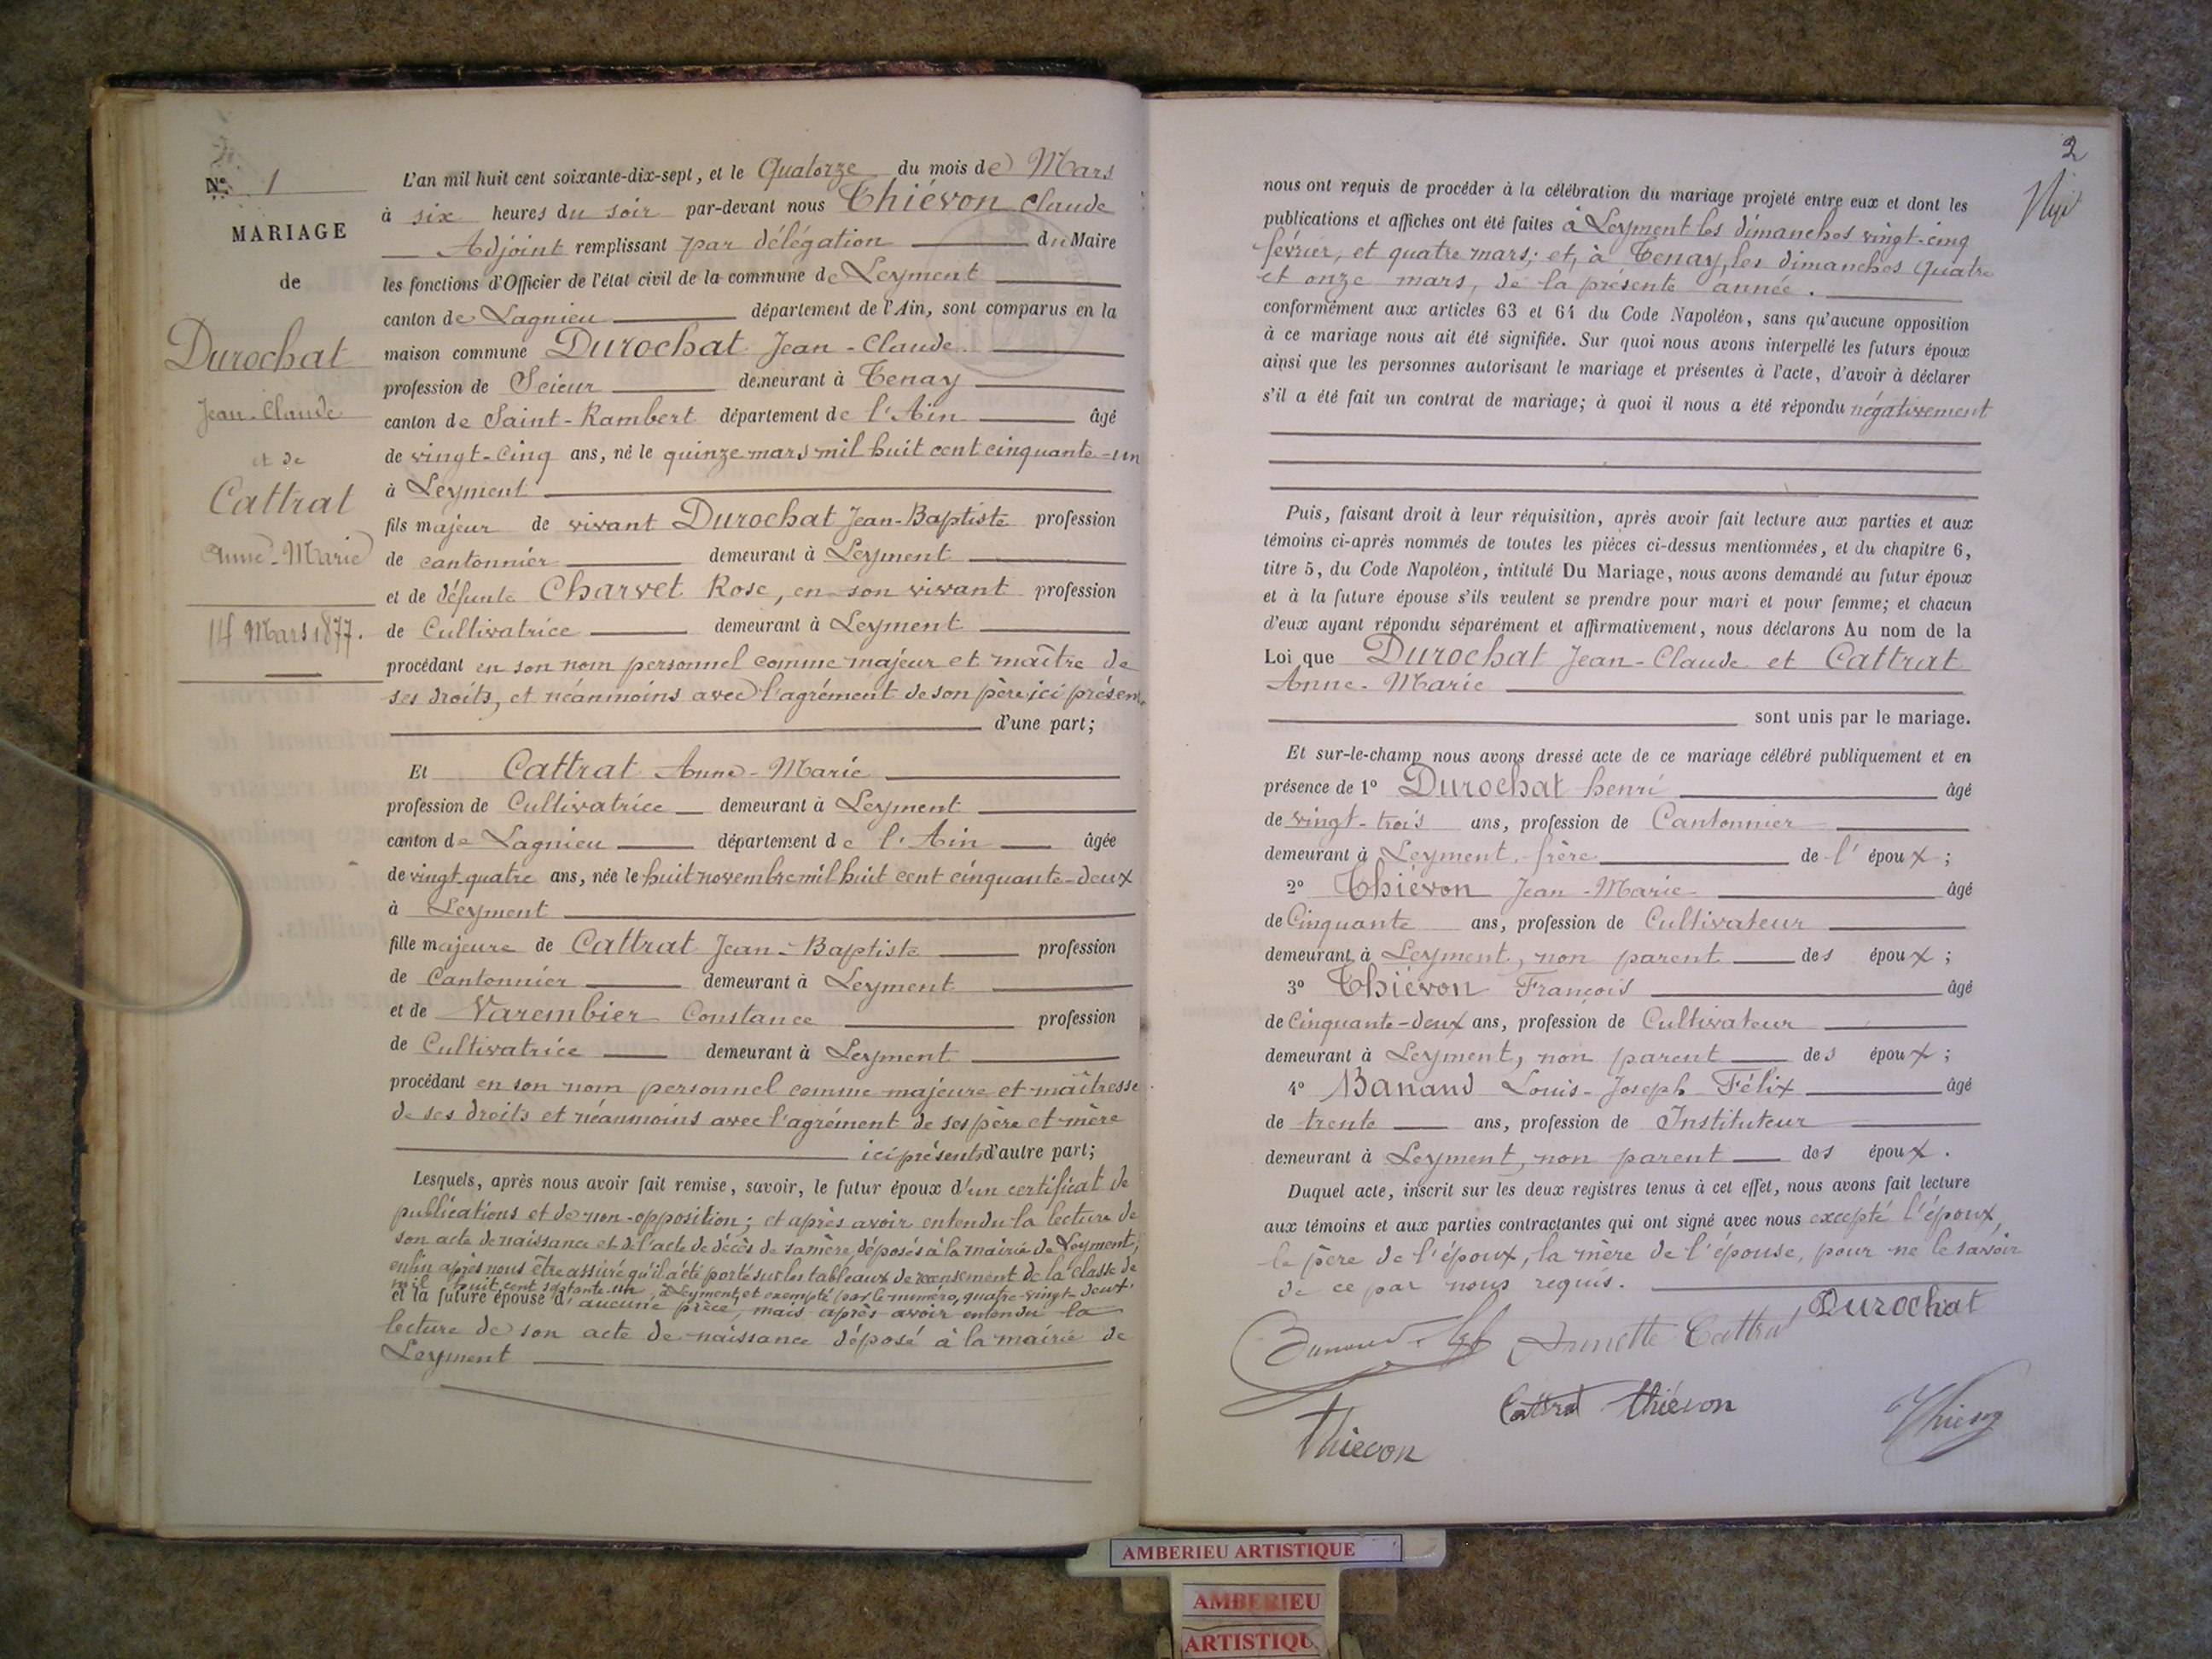 Nº 1
MARIAGE
de
Durochat
Jean-Claude
et de
Cattrat
Anne-Marie
14 Mars 1877.
L'an mil huit cent soixante-dix-sept, et le Quatorze du mois de Mars
à six heures du soir par-devant nous Thiévon Claude
Adjoint remplissant par délégation du Maire
les fonctions d'Officier de l'état civil de la commune de Leyment
canton de Lagnieu département de l'Ain, sont comparus en la
maison commune Durochat Jean-Claude
profession de Scieur demeurant à Tenay
canton de Saint-Rambert département de l'Ain âgé
de vingt-cinq ans, né le quinze mars mil huit cent cinquante-un
à Leyment
fils majeur de vivant Durochat Jean-Baptiste profession
de cantonnier demeurant à Leyment
et de défunte Charvet Rose, en son vivant profession
de Cultivatrice demeurant à Leyment
procédant en son nom personnel comme majeur et maître de
ses droits, et néanmoins avec l'agrément de son père ici présent
d'une part;
Et Cattrat Anne-Marie
profession de Cultivatrice demeurant à Leyment
canton de Lagnieu département de l'Ain âgée
de vingt-quatre ans, née le huit novembre mil huit cent cinquante-deux
à Leyment
fille majeure de Cattrat Jean-Baptiste profession
de Cantonnier demeurant à Leyment
et de Varembier Constance profession
de Cultivatrice demeurant à Leyment
procédant en son nom personnel comme majeure et maîtresse
de ses droits et néanmoins avec l'agrément de ses père et mère
ici présents d'autre part;
Lesquels, après nous avoir fait remise, savoir, le futur époux d'un certificat de
publications et de non-opposition; et après avoir entendu la lecture de
son acte de naissance et de l'acte de décès de sa mère, déposés à la mairie de Leyment,
enfin après nous être assuré qu'il a été porté sur les tableaux de recensement de la classe de
mil huit cent septante-un, à Leyment, et exempté par le numéro, quatre-vingt-deux
et la future épouse d'aucune pièce, mais après avoir entendu la
lecture de son acte de naissance déposé à la mairie de
Leyment
2
nous ont requis de procéder à la célébration du mariage projeté entre eux et dont les
publications et affiches ont été faites à Leyment les dimanches vingt-cinq
février, et quatre mars; et, à Tenay, les dimanches quatre
et onze mars, de la présente année.
conformément aux articles 63 et 64 du Code Napoléon, sans qu'aucune opposition
à ce mariage nous ait été signifiée. Sur quoi nous avons interpellé les futurs époux
ainsi que les personnes autorisant le mariage et présentes à l'acte, d'avoir à déclarer
s'il a été fait un contrat de mariage; à quoi il nous a été répondu négativement
Puis, faisant droit à leur réquisition, après avoir fait lecture aux parties et aux
témoins ci-après nommés de toutes les pièces ci-dessus mentionnées, et du chapitre 6,
titre 5, du Code Napoléon, intitulé Du Mariage, nous avons demandé au futur époux
et à la future épouse s'ils veulent se prendre pour mari et pour femme; et chacun
d'eux ayant répondu séparément et affirmativement, nous déclarons Au nom de la
Loi que Durochat Jean-Claude et Cattrat
Anne-Marie
sont unis par le mariage.
Et sur-le-champ nous avons dressé acte de ce mariage célébré publiquement et en
présence de 1º Durochat henri âgé
de vingt-trois ans, profession de Cantonnier
demeurant à Leyment, frère de l'époux;
2º Thiévon Jean-Marie âgé
de Cinquante ans, profession de Cultivateur
demeurant à Leyment, non parent des époux;
3º Thiévon François âgé
de Cinquante-deux ans, profession de Cultivateur
demeurant à Leyment, non parent des époux;
4º Banand Louis-Joseph Félix âgé
de trente ans, profession de Instituteur
demeurant à Leyment, non parent des époux.
Duquel acte, inscrit sur les deux registres tenus à cet effet, nous avons fait lecture
aux témoins et aux parties contractantes qui ont signé avec nous excepté l'époux,
le père de l'époux, la mère de l'épouse, pour ne le savoir
de ce par nous requis.
Durochat
Annette Cattrat
Cattrat Thiévon
Thievon
AMBERIEU ARTISTIQUE
AMBERIEU
ARTISTIQU